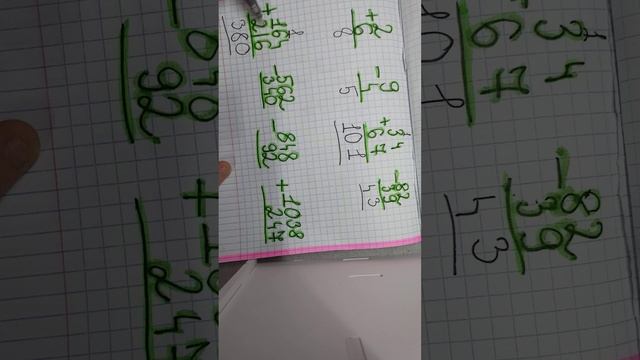 +2
6
8
-9
4
5
1
+34
67
101
-82
39
43
1
+164
216
380
-562
346
-848
92
+1038
247